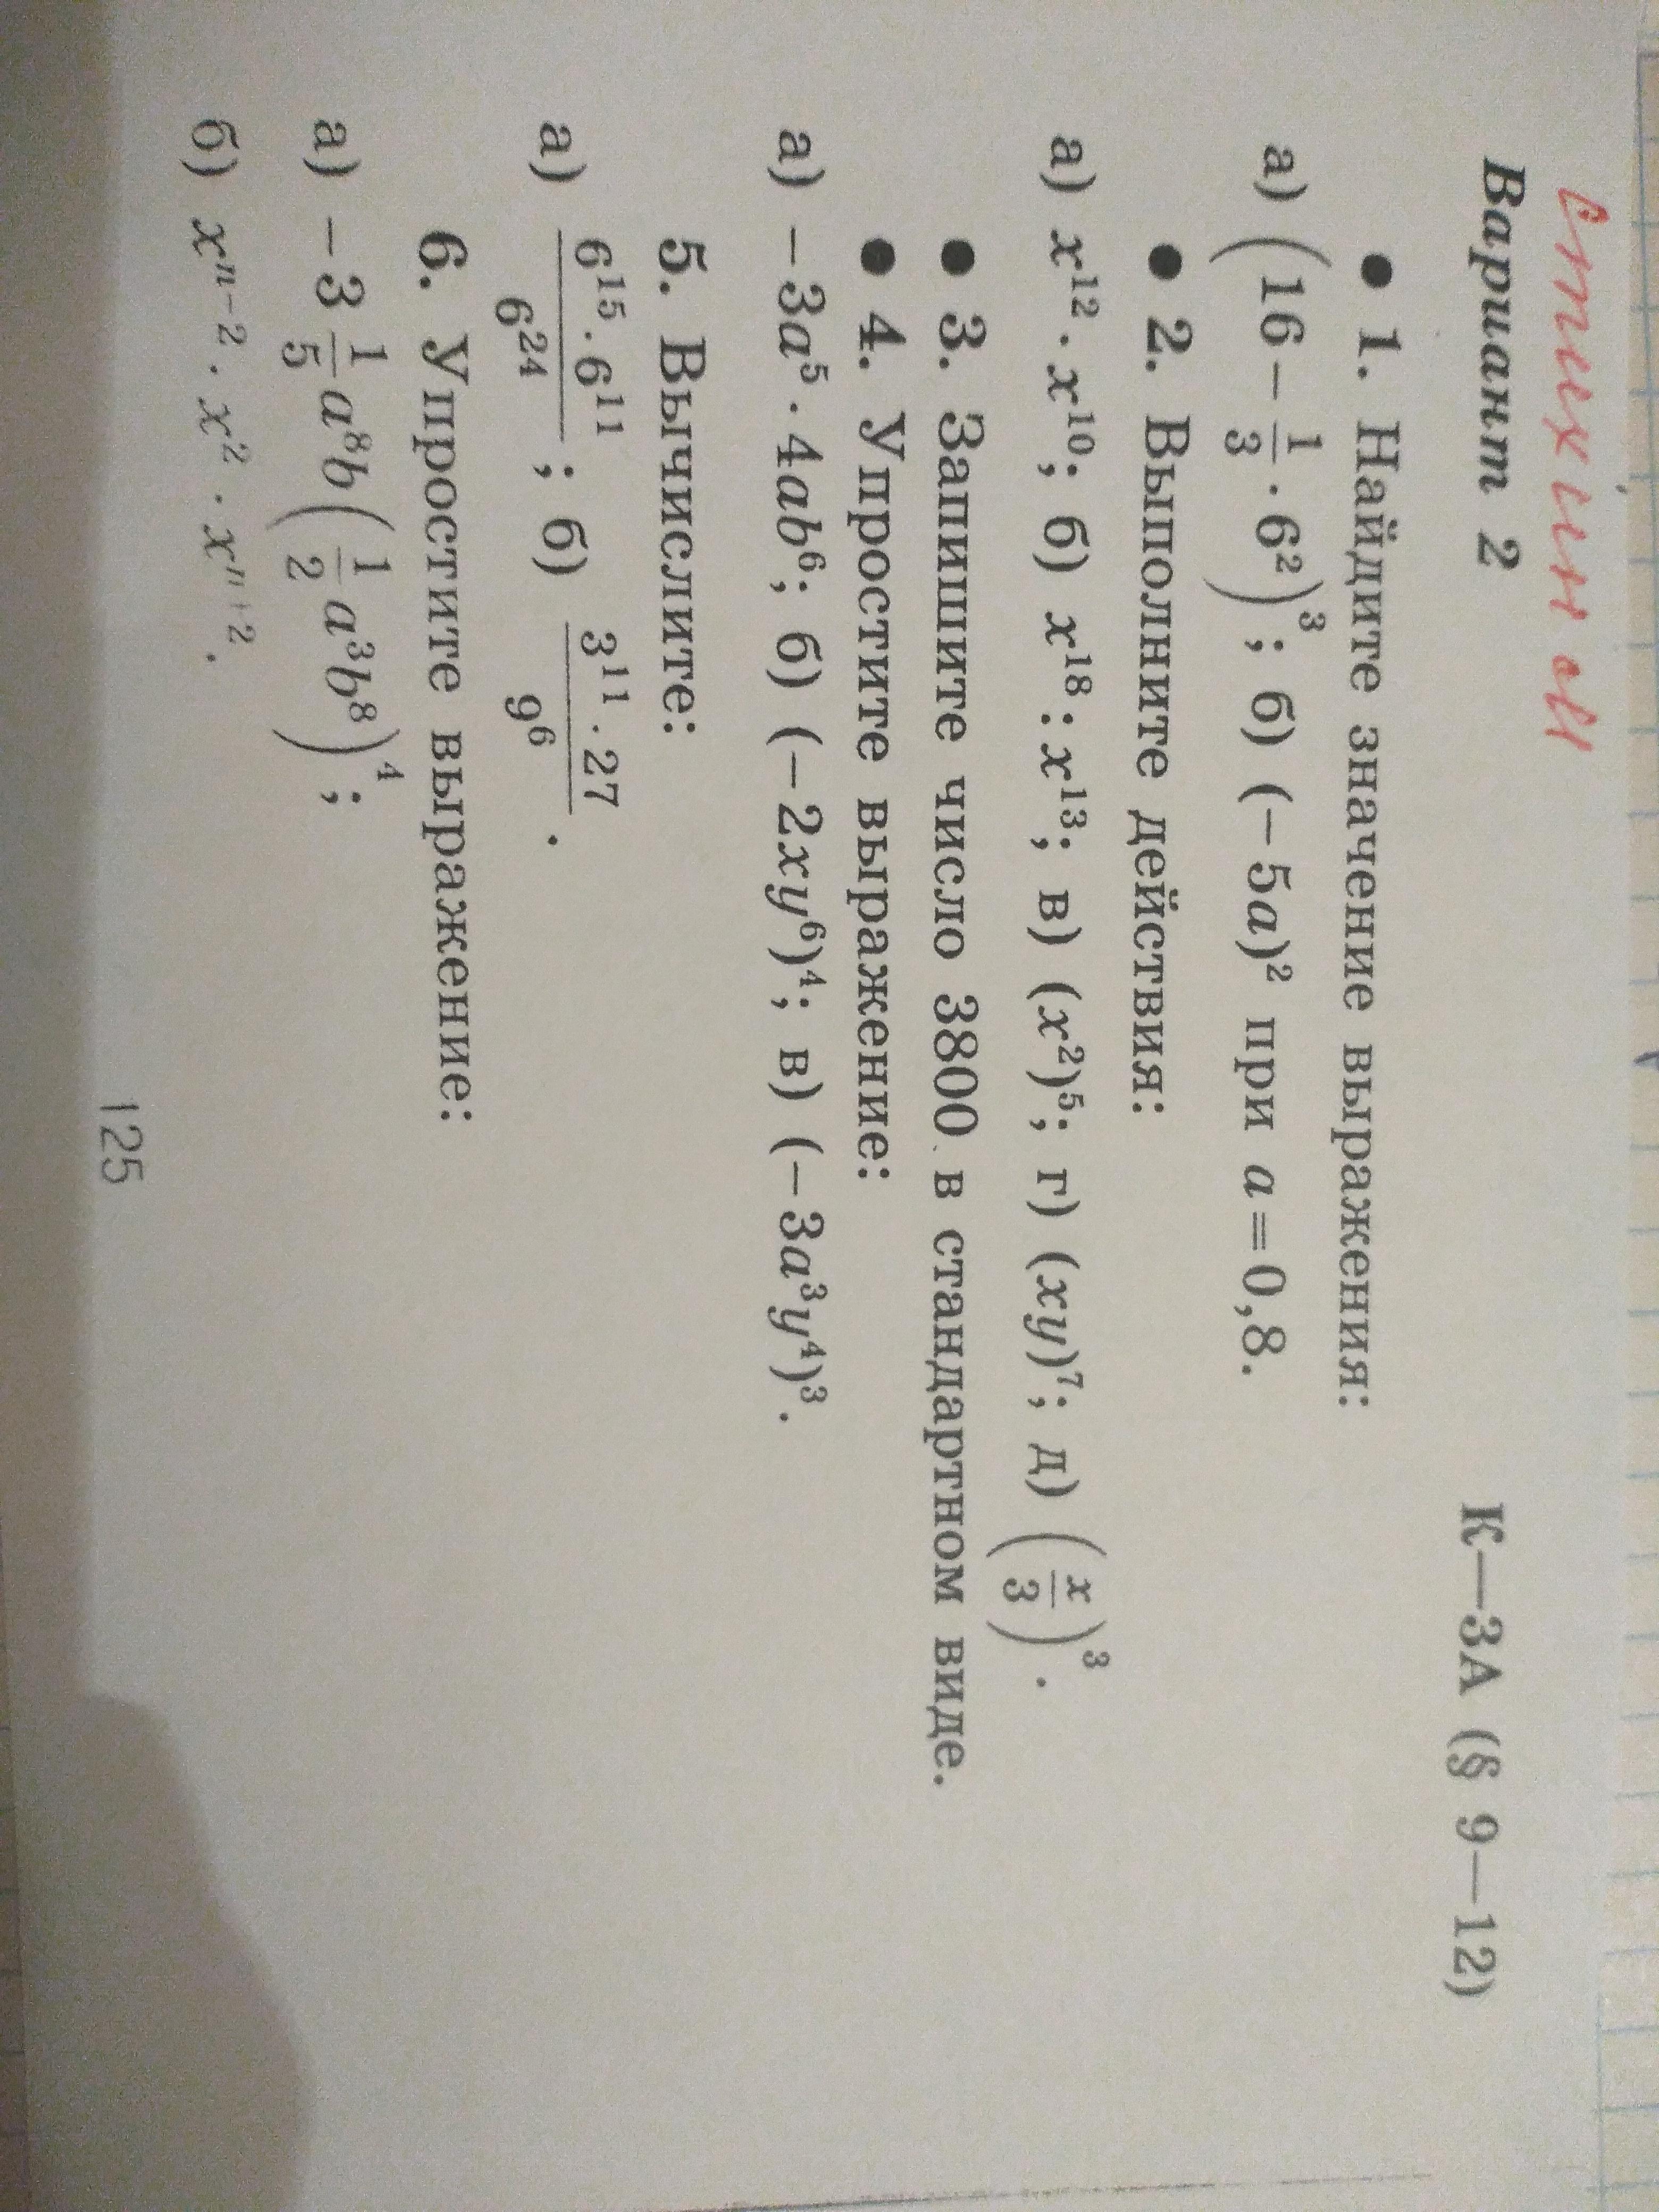 стихи н ои
Вариант 2 К—3А (§ 9—12)
• 1. Найдите значение выражения:
а) (16 − 1/3 · 6²)³; б) (−5a)² при a=0,8.
• 2. Выполните действия:
а) x¹² · x¹⁰; б) x¹⁸ : x¹³; в) (x²)⁵; г) (xy)⁷; д) (x/3)³.
• 3. Запишите число 3800 в стандартном виде.
• 4. Упростите выражение:
а) −3a⁵ · 4ab⁶; б) (−2xy⁶)⁴; в) (−3a³y⁴)³.
5. Вычислите:
а) 6¹⁵ · 6¹¹ / 6²⁴; б) 3¹¹ · 27 / 9⁶.
6. Упростите выражение:
а) −3 1/5 a⁸b (1/2 a³b⁸)⁴;
б) xⁿ⁻² · x² · xⁿ⁺².
125